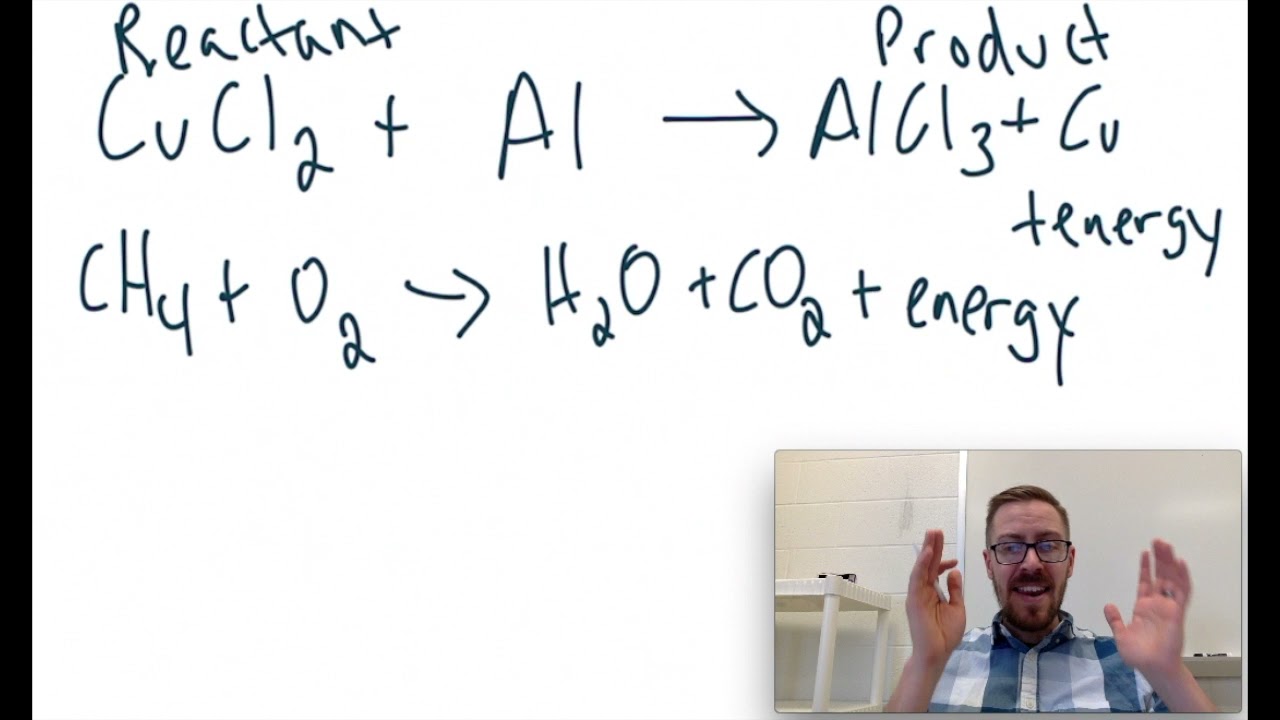 Reactant Product
CuCl₂ + Al → AlCl₃ + Cu
+ energy
CH₄ + O₂ → H₂O + CO₂ + energy